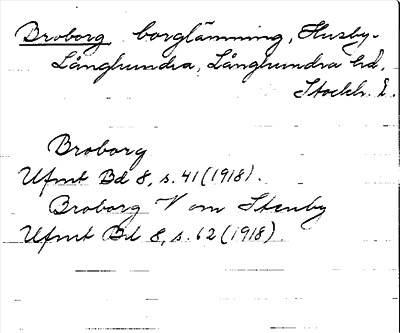 Broborg borglämning, Husby-
Långhundra, Långhundra hd,
Stockh. L.
Broborg
Ufmt Bd 8, s. 41 (1918).
Broborg V om Stenby
Ufmt Bd 8, s. 62 (1918).